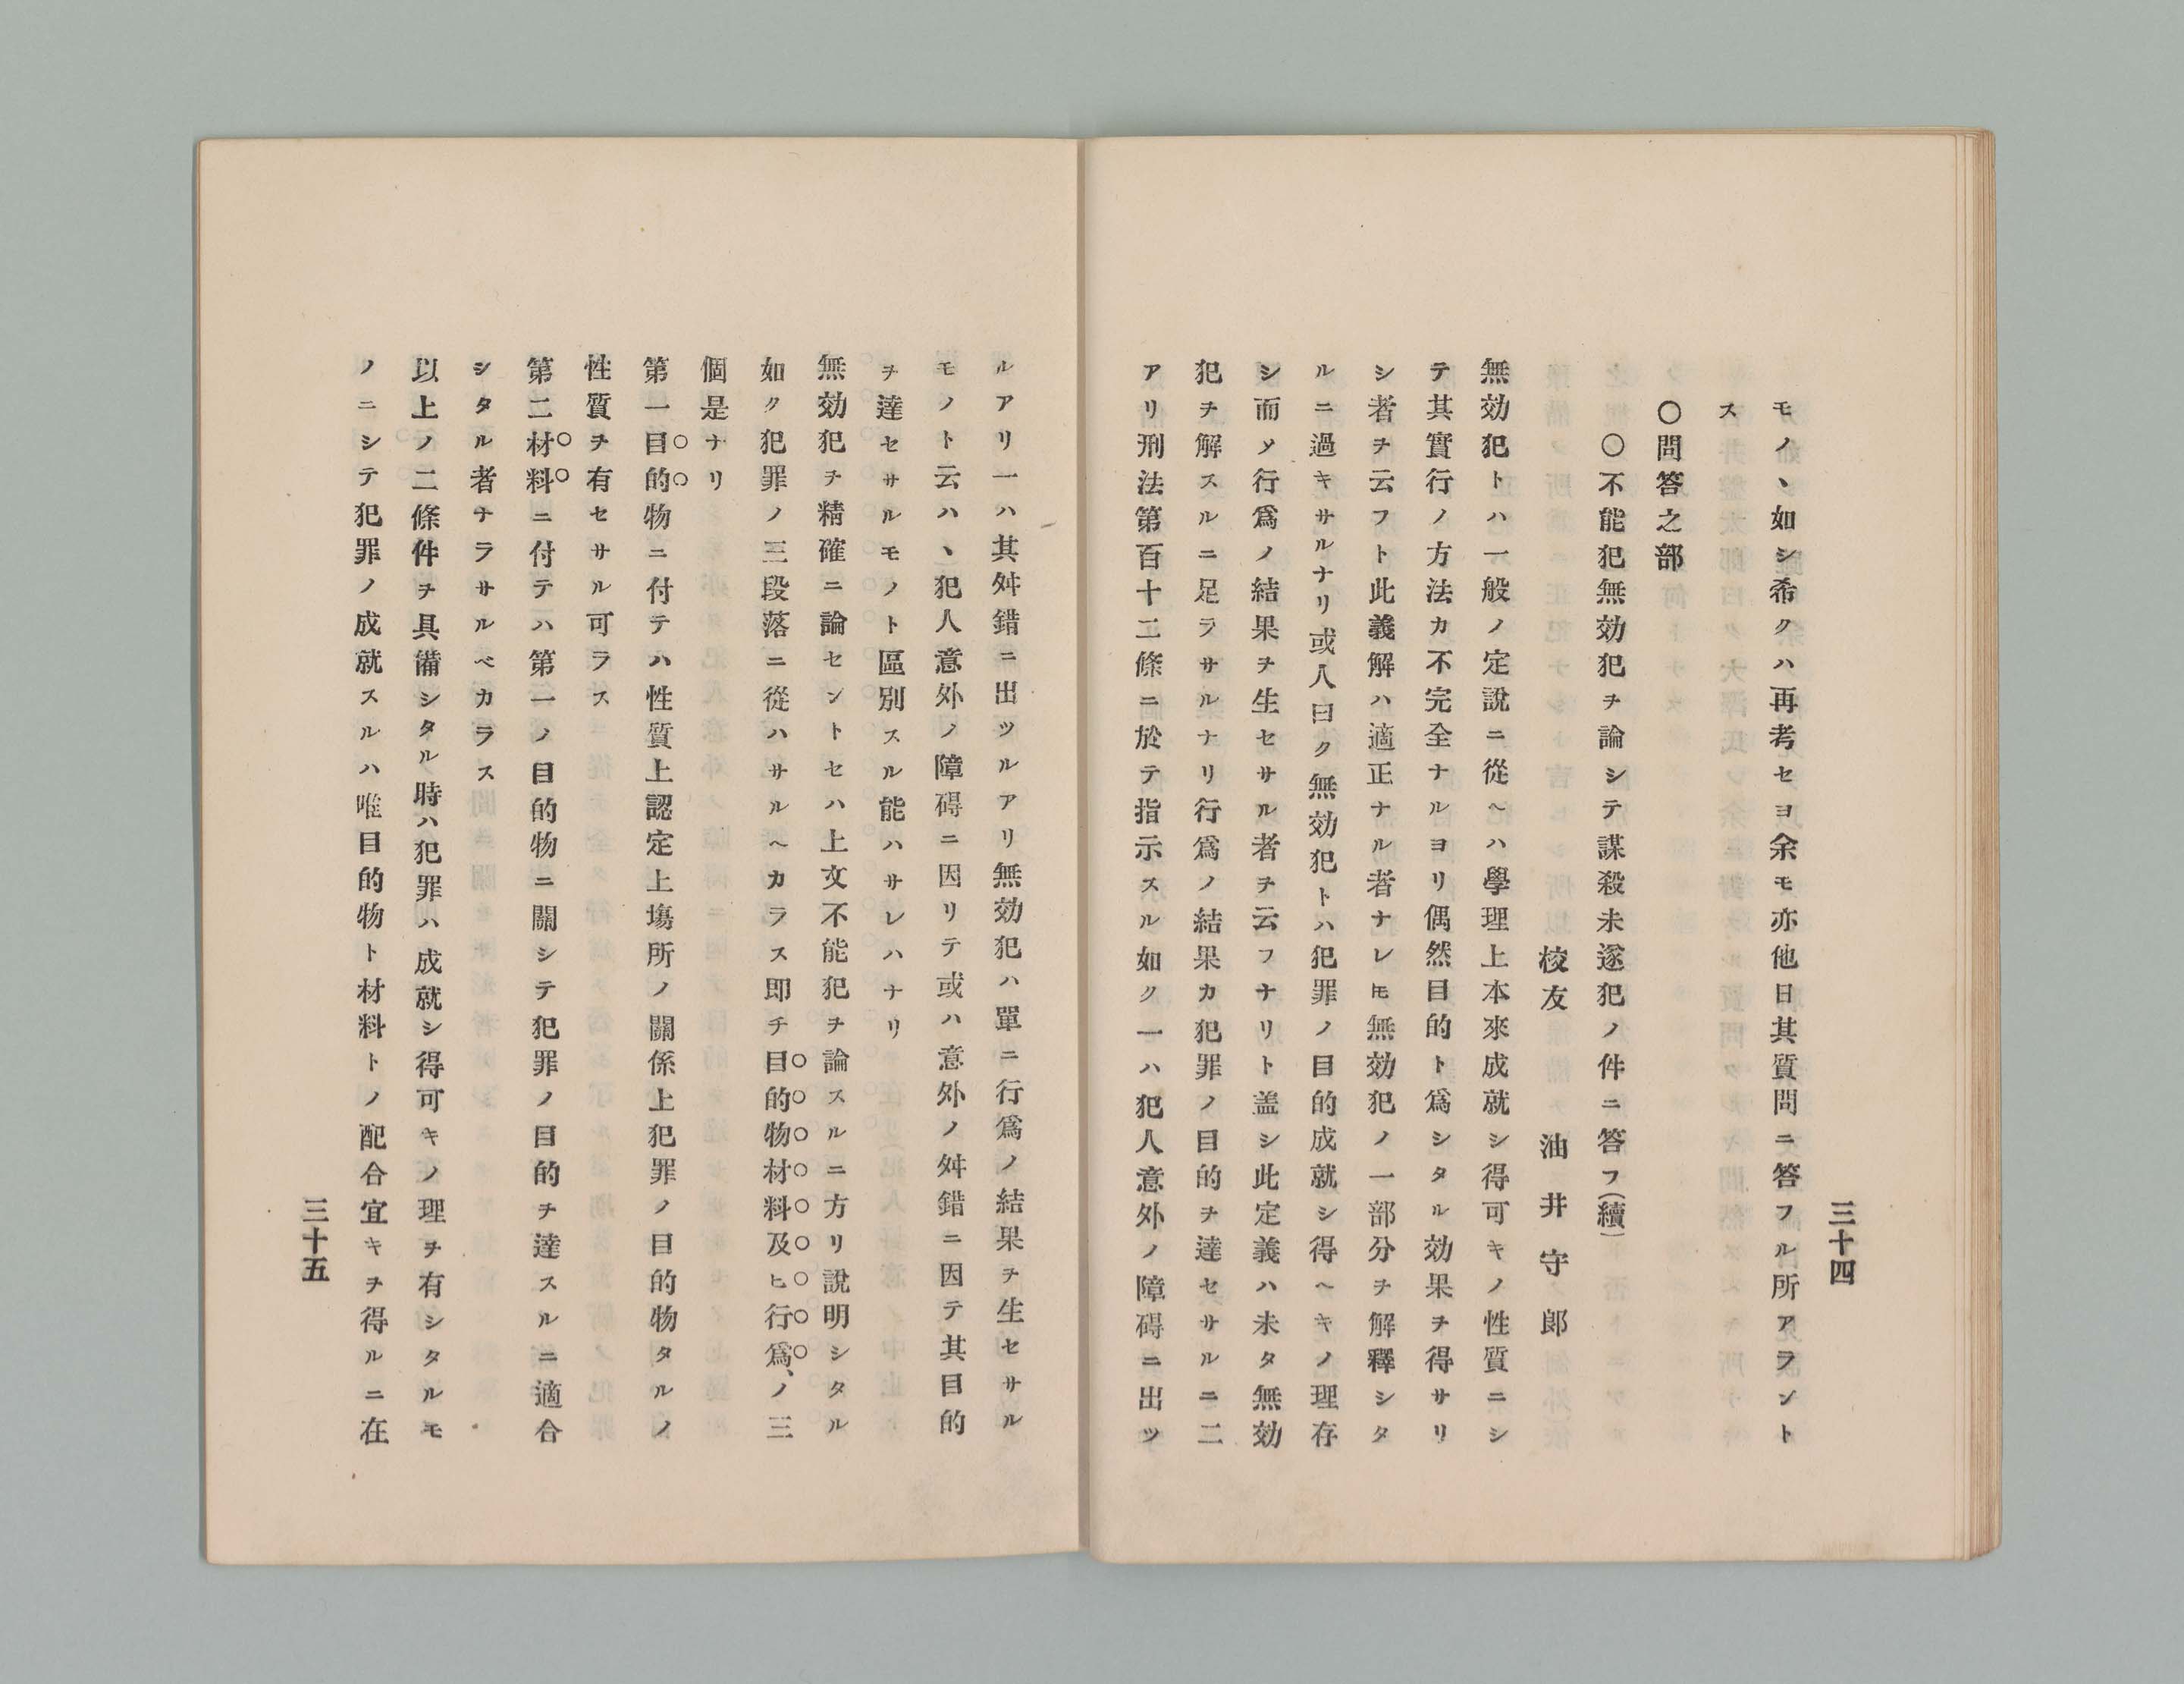 三十四
モノヽ如シ希クハ再考セヨ余モ亦他日其質問ニ答フル所アラント
ス
〇問答之部
〇不能犯無効犯ヲ論シテ謀殺未遂犯ノ件ニ答フ(續)
校友 油井守郎
無効犯トハ一般ノ定說ニ從ヘハ學理上本來成就シ得可キノ性質ニシ
テ其實行ノ方法カ不完全ナルヨリ偶然目的ト爲シタル効果ヲ得サリ
シ者ヲ云フト此義解ハ適正ナル者ナレ𪜈無効犯ノ一部分ヲ解釋シタ
ルニ過キサルナリ或人曰ク無効犯トハ犯罪ノ目的成就シ得ヘキノ理存
シ而メ行爲ノ結果ヲ生セサル者ヲ云フナリト盖シ此定義ハ未タ無効
犯ヲ解スルニ足ラサルナリ行爲ノ結果カ犯罪ノ目的ヲ達セサルニ二
アリ刑法第百十二條ニ於テ指示スル如ク一ハ犯人意外ノ障碍ニ出ツ
ルアリ一ハ其舛錯ニ出ツルアリ無効犯ハ單ニ行爲ノ結果ヲ生セサル
モノト云ハヽ犯人意外ノ障碍ニ因リテ或ハ意外ノ舛錯ニ因テ其目的
ヲ達セサルモノト區別スル能ハサレハナリ
無効犯ヲ精確ニ論セントセハ上文不能犯ヲ論スルニ方リ說明シタル
如ク犯罪ノ三段落ニ從ハサルヘカラス即チ目的物材料及ヒ行爲、ノ三
個是ナリ
第一目的物ニ付テハ性質上認定上塲所ノ關係上犯罪ノ目的物タルノ
性質ヲ有セサル可ラス
第二材料ニ付テハ第一ノ目的物ニ關シテ犯罪ノ目的ヲ達スルニ適合
シタル者ナラサルベカラス
以上ノ二條件ヲ具備シタル時ハ犯罪ハ成就シ得可キノ理ヲ有シタルモ
ノニシテ犯罪ノ成就スルハ唯目的物ト材料トノ配合宜キヲ得ルニ在
三十五